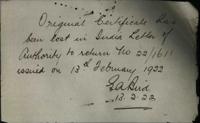 Original Certificate has
been lost in India Letter of
Authority to return No 22/1611
issued on 13th February 1922
GABird
13.2.22